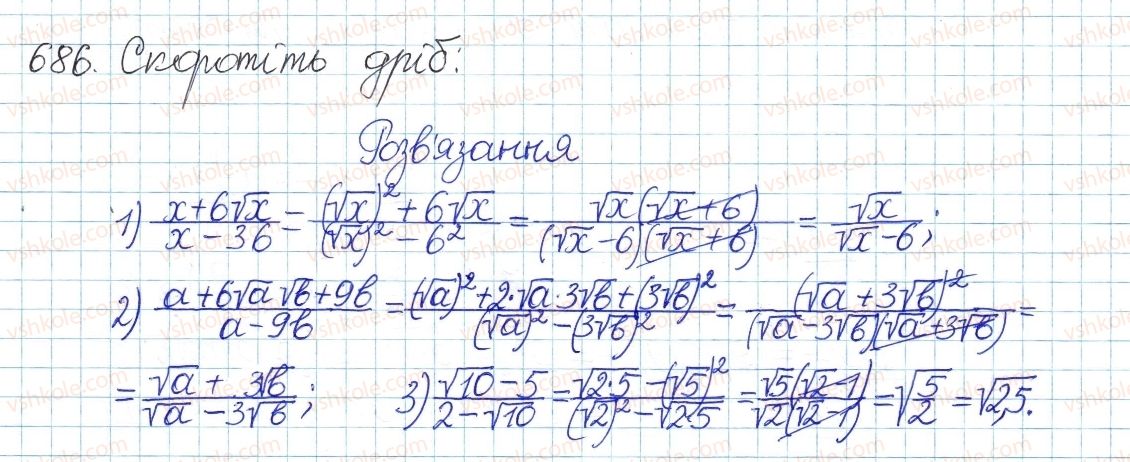 686. Скоротіть дріб:
Розв'язання
1) (x+6√x)/(x−36) = ((√x)²+6√x)/((√x)²−6²) = (√x(√x+6))/((√x−6)(√x+6)) = √x/(√x−6);
2) (a+6√a√b+9b)/(a−9b) = ((√a)²+2·√a·3√b+(3√b)²)/((√a)²−(3√b)²) = (√a+3√b)²/((√a−3√b)(√a+3√b)) =
= (√a+3√b)/(√a−3√b); 3) (√10−5)/(2−√10) = (√2·5−(√5)²)/((√2)²−√2·5) = (√5(√2−1))/(√2(√2−1)) = √(5/2) = √2,5.